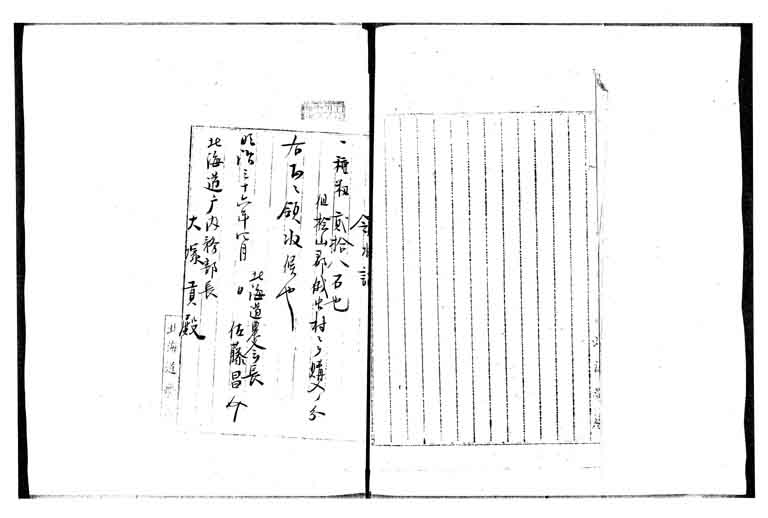 領収証
一種籾貳拾八石也
但檜山郡俄虫村ヨリ購入ノ分
右正ニ領収候也
明治三十六年四月 日
北海道農会長
佐藤昌介
北海道庁内務部長
大塚貢殿
北海道庁